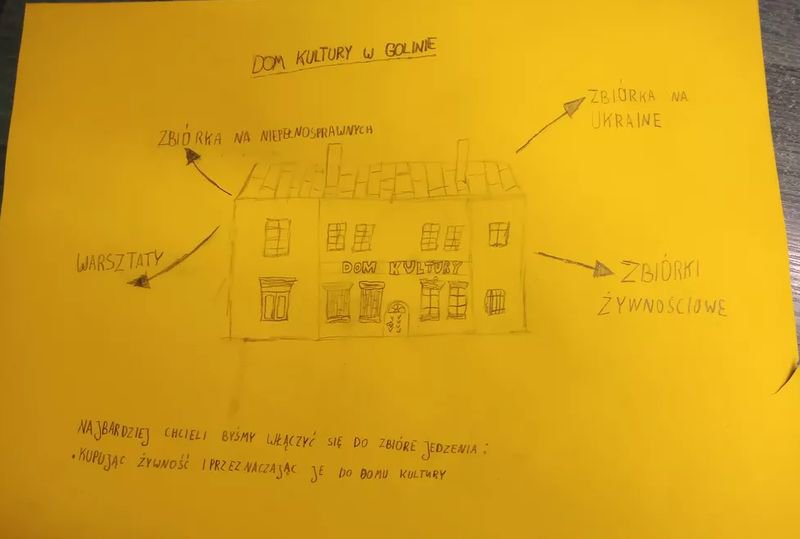 DOM KULTURY W GOLINIE
ZBIÓRKA NA NIEPEŁNOSPRAWNYCH
ZBIÓRKA NA
UKRAINE
WARSZTATY
DOM KULTURY
ZBIÓRKI
ŻYWNOŚCIOWE
NAJBARDZIEJ CHCIELI BYŚMY WŁĄCZYĆ SIĘ DO ZBIÓRE JEDZENIA:
• KUPUJĄC ŻYWNOŚĆ I PRZEZNACZAJĄC JE DO DOMU KULTURY